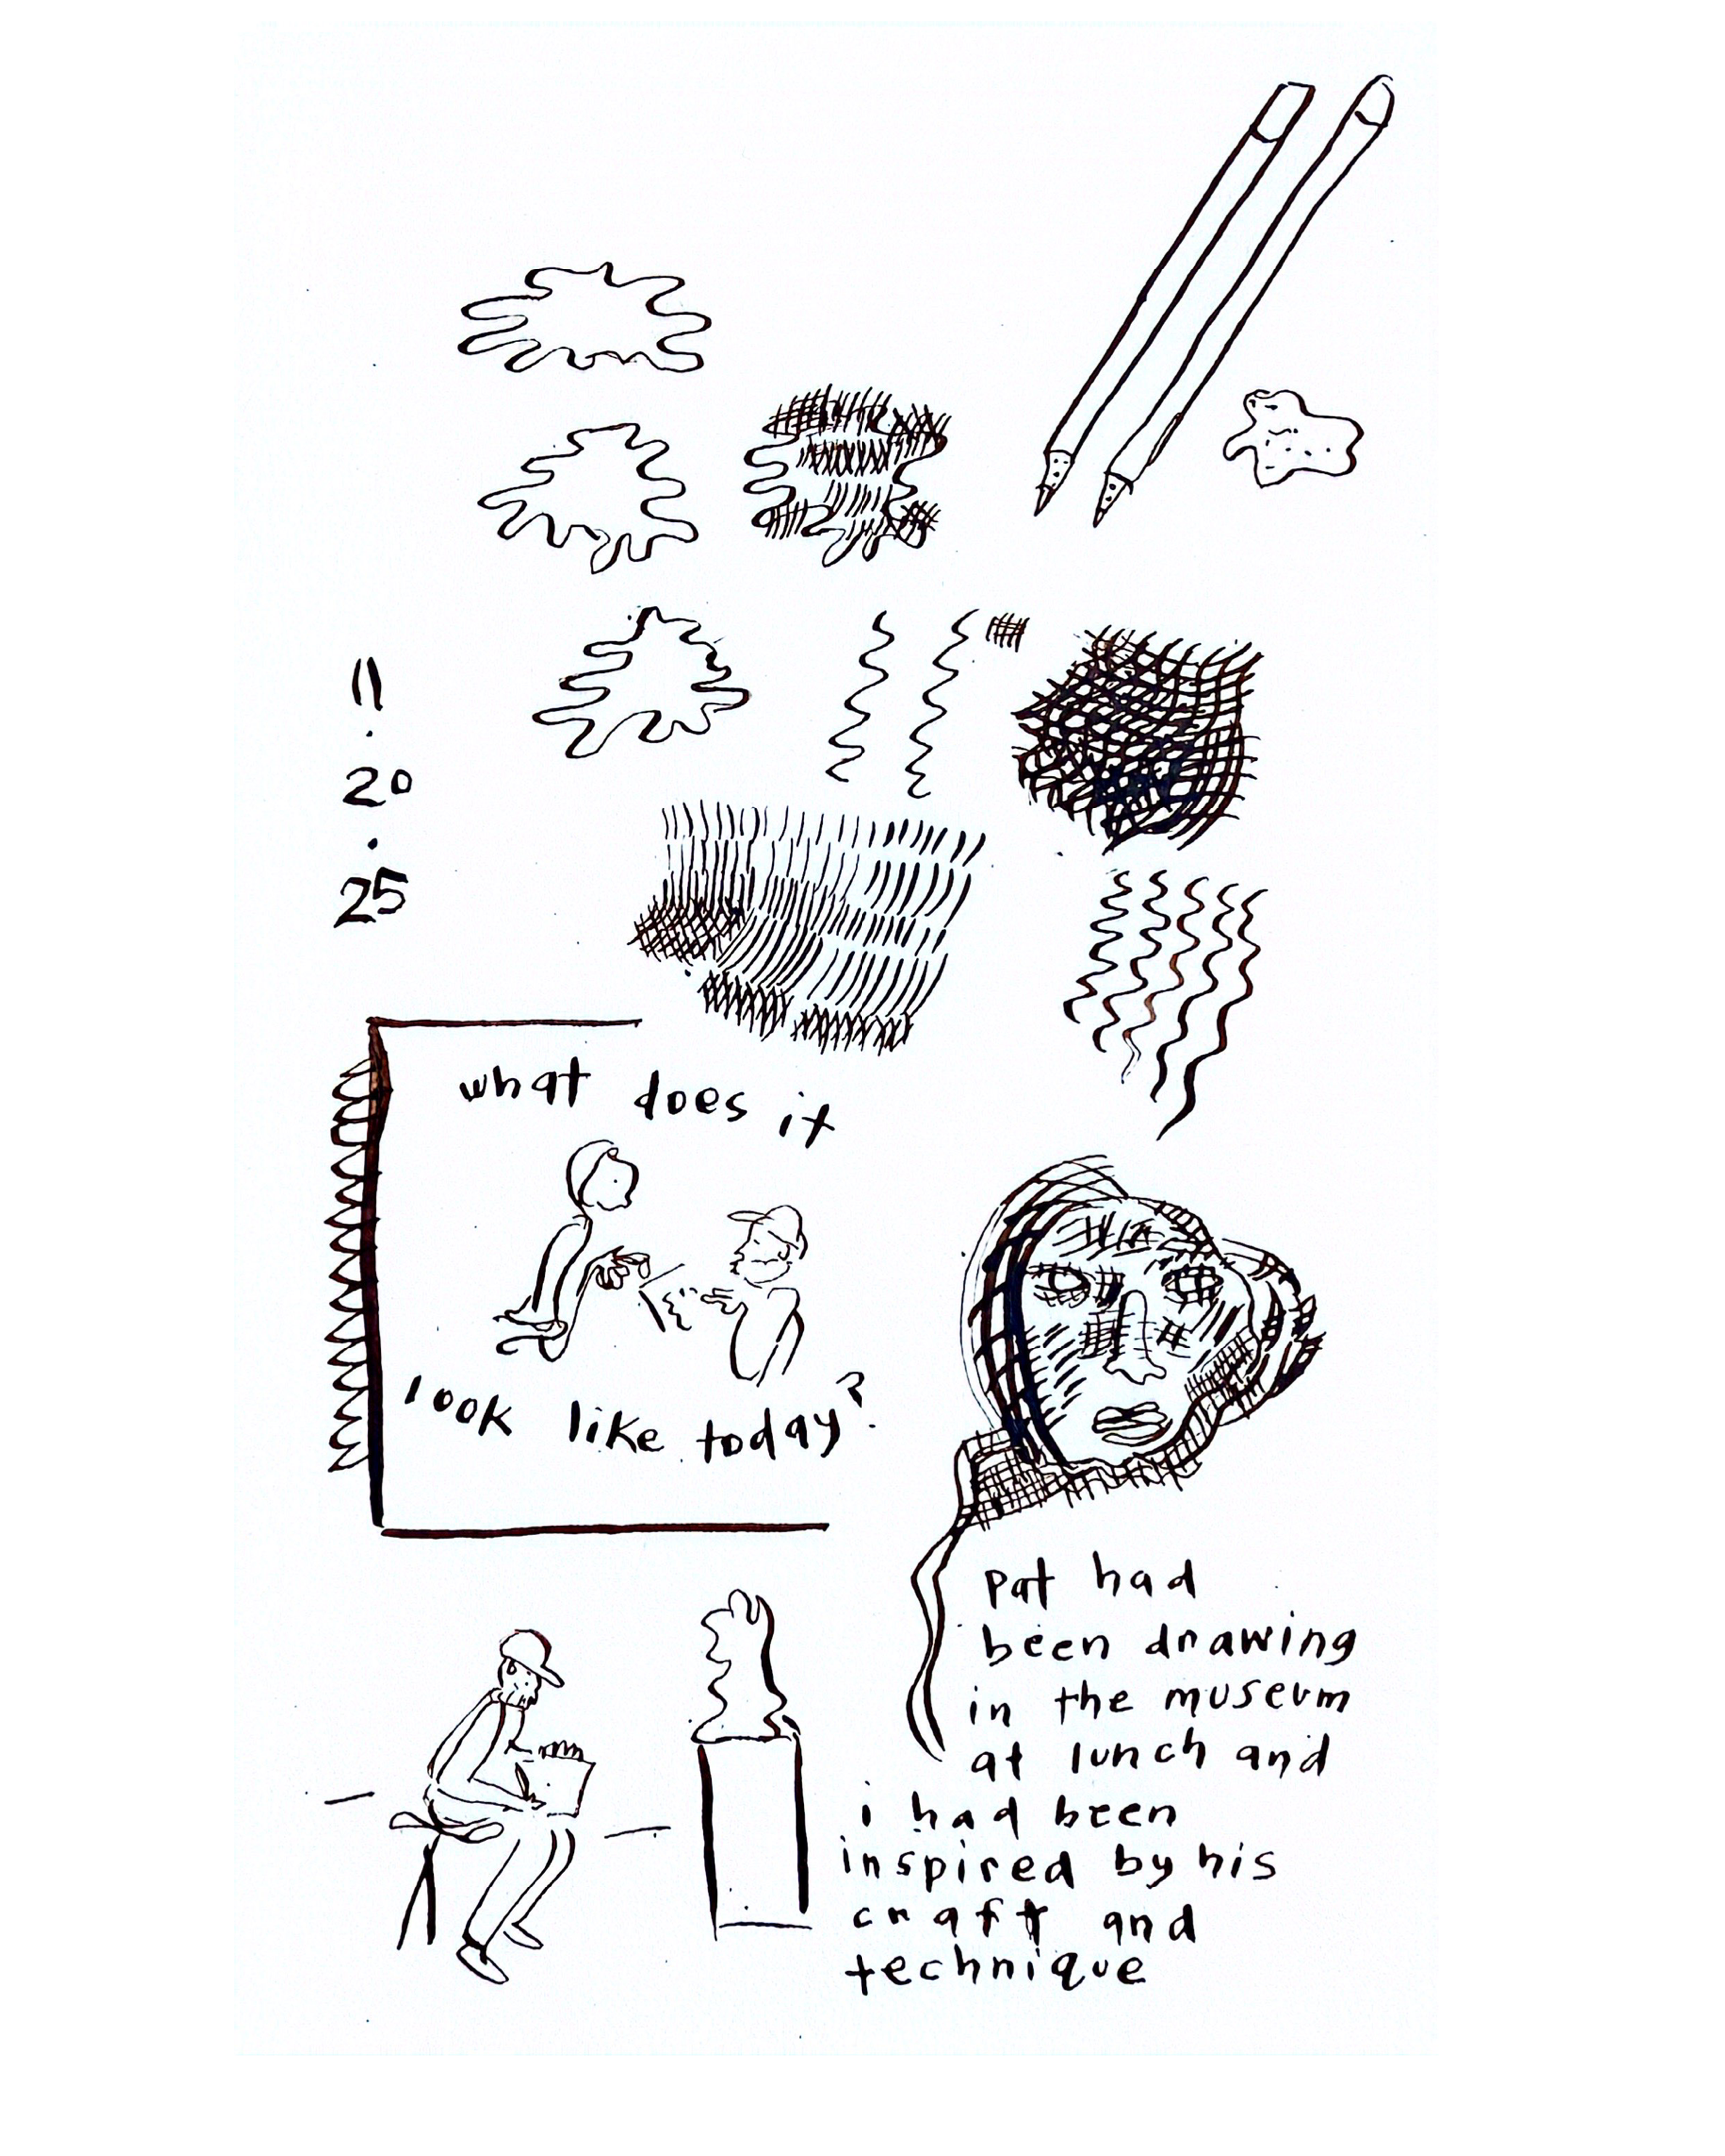 11
.
20
.
25
what does it
look like today?
pat had
been drawing
in the museum
at lunch and
i had been
inspired by his
craft and
technique